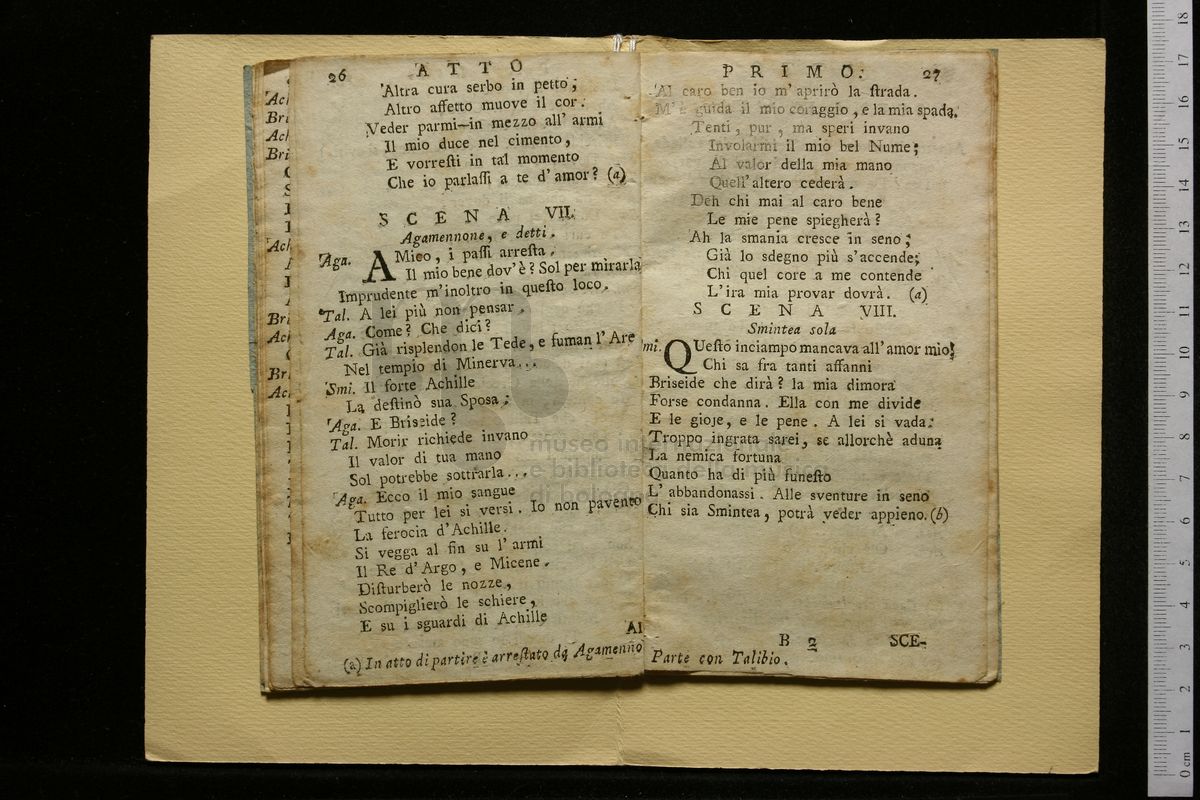 26 ATTO
Altra cura serbo in petto;
Altro affetto muove il cor.
Veder parmi in mezzo all' armi
Il mio duce nel cimento,
E vorreſti in tal momento
Che io parlaſſi a te d'amor? (a)
SCENA VII.
Agamennone, e detti.
Aga. AMico, i paſſi arreſta.
Il mio bene dov'è? Sol per mirarla
Imprudente m'inoltro in queſto loco.
Tal. A lei più non pensar.
Aga. Come? Che dici?
Tal. Già risplendon le Tede, e fuman l'Are
Nel tempio di Minerva...
Smi. Il forte Achille
La deſtinò sua Sposa;
Aga. E Briseide?
Tal. Morir richiede invano
Il valor di tua mano
Sol potrebbe sottrarla...
Aga. Ecco il mio sangue
Tutto per lei si versi. Io non pavento
La ferocia d'Achille.
Si vegga al fin su l'armi
Il Re d'Argo, e Micene.
Diſturberò le nozze,
Scompiglierò le schiere,
E su i sguardi di Achille
Al
(a) In atto di partire è arreſtato da Agamenno
PRIMO. 27
Al caro ben io m'aprirò la ſtrada.
M'è guida il mio coraggio, e la mia spada.
Tenti, pur, ma speri invano
Involarmi il mio bel Nume;
Al valor della mia mano
Quell'altero cederà.
Deh chi mai al caro bene
Le mie pene spiegherà?
Ah la smania cresce in seno;
Già lo sdegno più s'accende;
Chi quel core a me contende
L'ira mia provar dovrà. (a)
SCENA VIII.
Smintea sola
mi. QUeſto inciampo mancava all'amor mio!
Chi sa fra tanti affanni
Briseide che dirà? la mia dimora
Forse condanna. Ella con me divide
E le gioje, e le pene. A lei si vada:
Troppo ingrata sarei, se allorchè aduna
La nemica fortuna
Quanto ha di più funeſto
L'abbandonassi. Alle sventure in seno
Chi sia Smintea, potrà veder appieno. (b)
B 2 SCE-
Parte con Talibio.
Ach
Bri
Ach
Bri
Ach
Bri
Ach
Br
Ac
museo internazionale
e biblioteca della musica
di bologna
18
17
16
15
14
13
12
11
10
9
8
7
6
5
4
3
2
1
0 cm